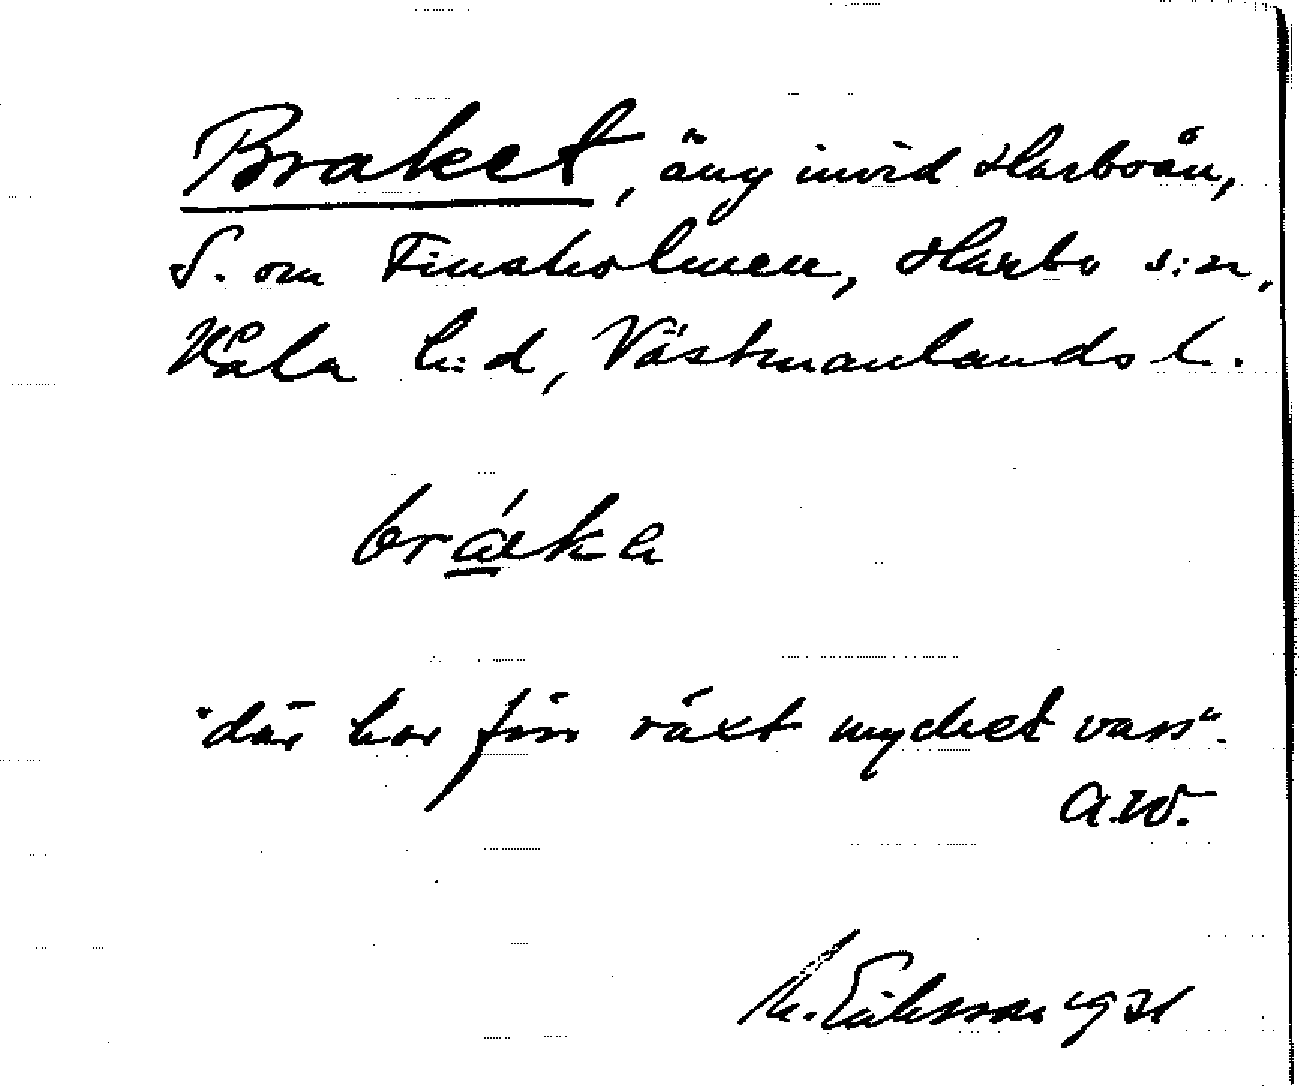 Braket, äng invid Harboån,
S. om Finsholmen, Harbo s:n,
Våla h:d, Västmanlands l.
bráka
"där har förr växt mycket vass".
A.W.
M. Eriksson 1931